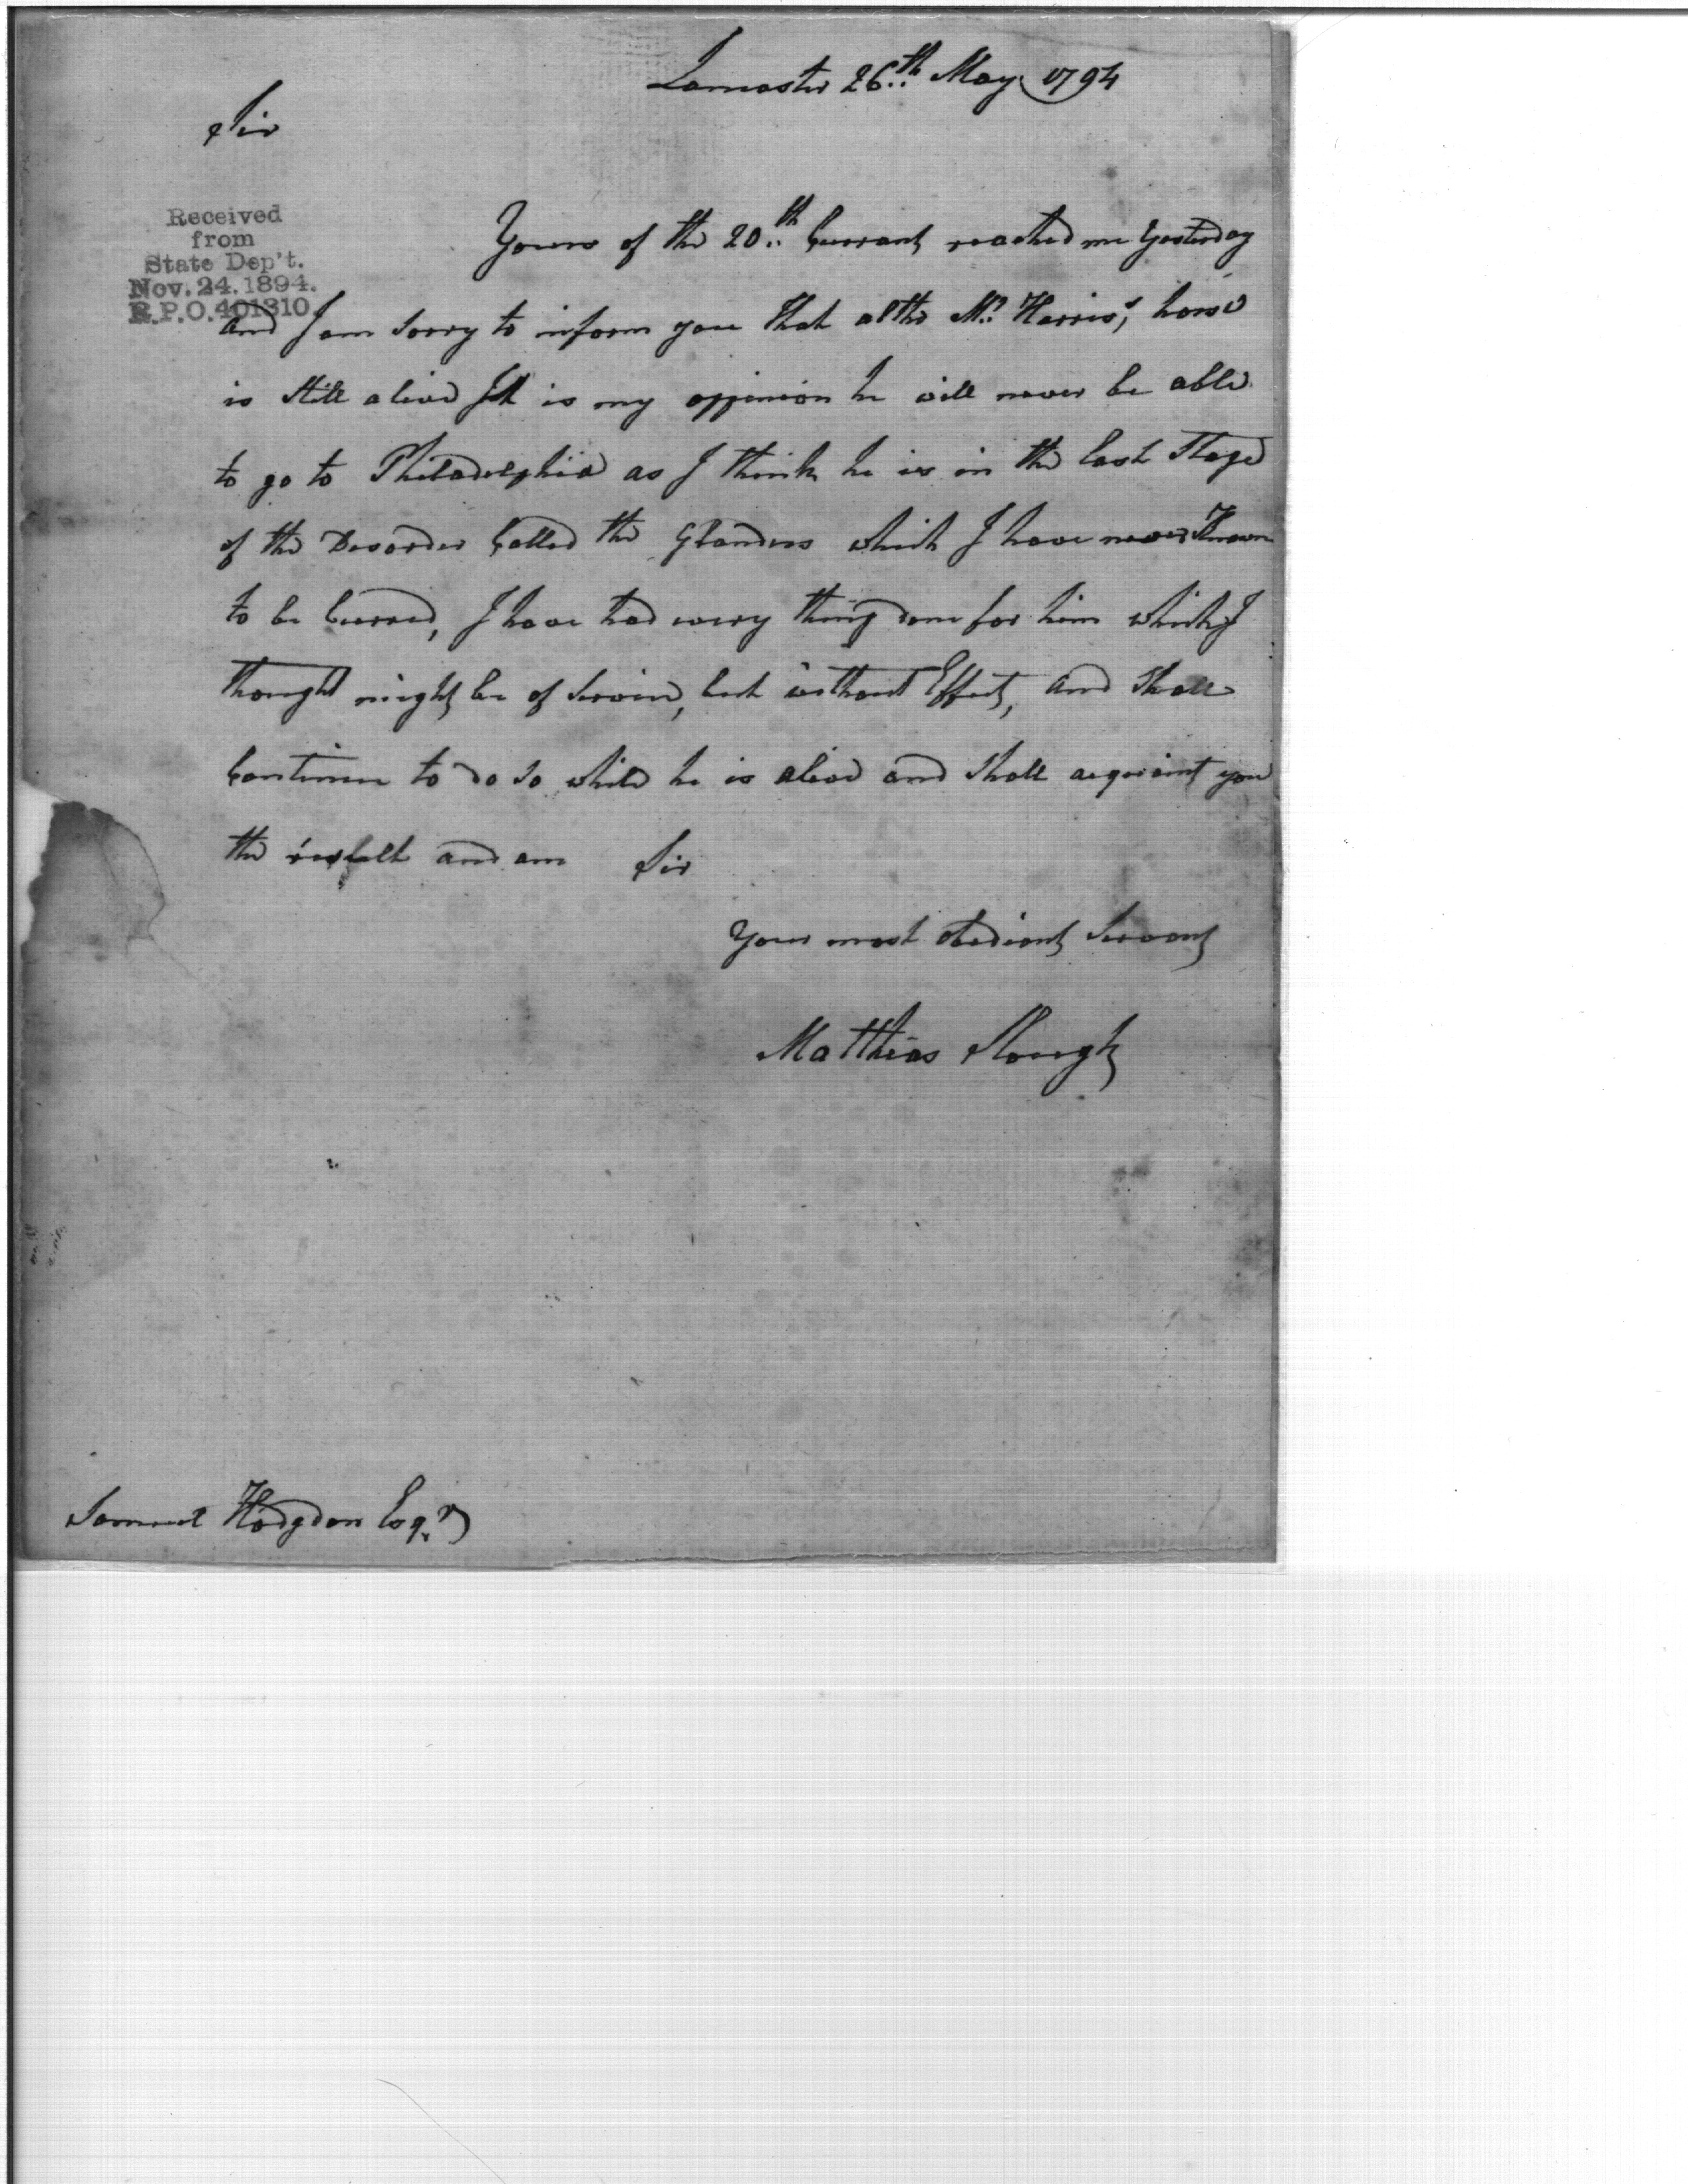 Lancaster 26th May 1794
Sir
Received
from
State Dep't.
Nov. 24. 1894.
R.P.O. 401310
Yours of the 20th Currant reached me yesterday
and I am Sorry to inform you that altho Mr. Harris's horse
is Still alive It is my oppinion he will never be able
to go to Philadelphia as I think he is in the last Stage
of the Desorder Called the Glanders which I have never Known
to be Curred, I have had every thing done for him which I
thought might be of Service, but without Effect, and Shall
Continue to do So while he is alive and Shall acquaint you
the result and am Sir
Your most obedient Servant
Matthias Slough
Samuel Hodgdon Esqr.